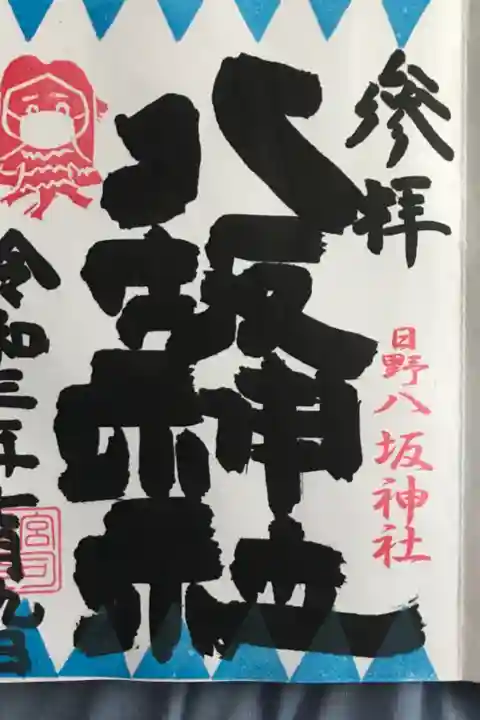 參拝
日野八坂神社
八坂神社
令和三年七月九日
宮司